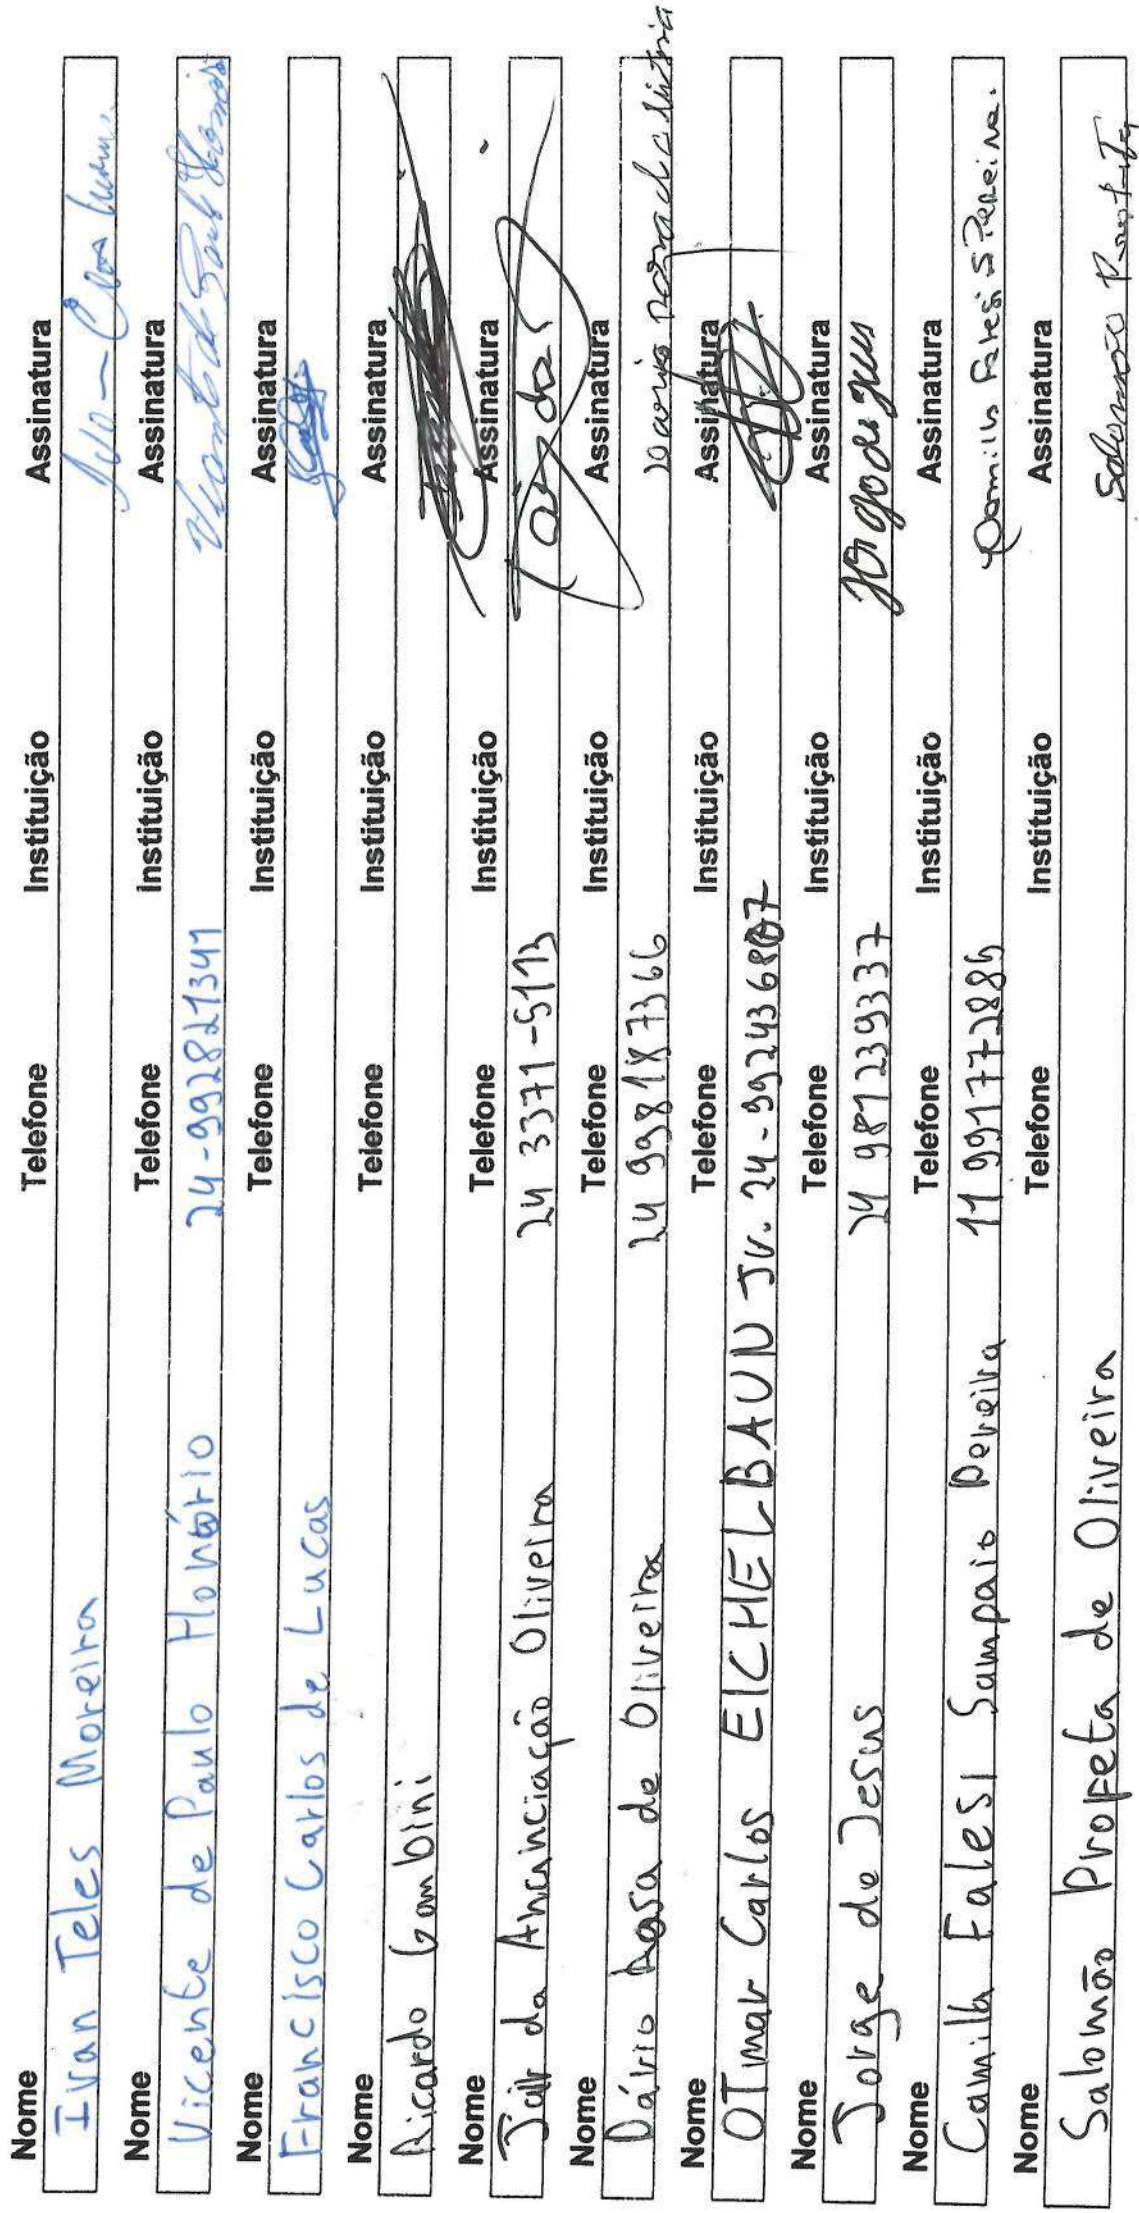 Nome Telefone Instituição Assinatura
Ivan Teles Moreira
Nome Telefone Instituição Assinatura
Vicente de Paulo Honório 24-992821341
Nome Telefone Instituição Assinatura
Francisco Carlos de Lucas
Nome Telefone Instituição Assinatura
Ricardo Gambini
Nome Telefone Instituição Assinatura
Jair da Anunciação Oliveira 24 3371-5113
Nome Telefone Instituição Assinatura
Dário Rosa de Oliveira 24 998187366
Nome Telefone Instituição Assinatura
OTimar Carlos EICHELBAUN Jr.
Nome Telefone Instituição Assinatura
Jorge de Jesus 24 981239337 Jorge de jesus
Nome Telefone Instituição Assinatura
Camilla Falesi Sampaio Pereira 11 991772886 Camilla Falesi S Pereira.
Nome Telefone Instituição Assinatura
Salomão Profeta de Oliveira Salomão Profeta